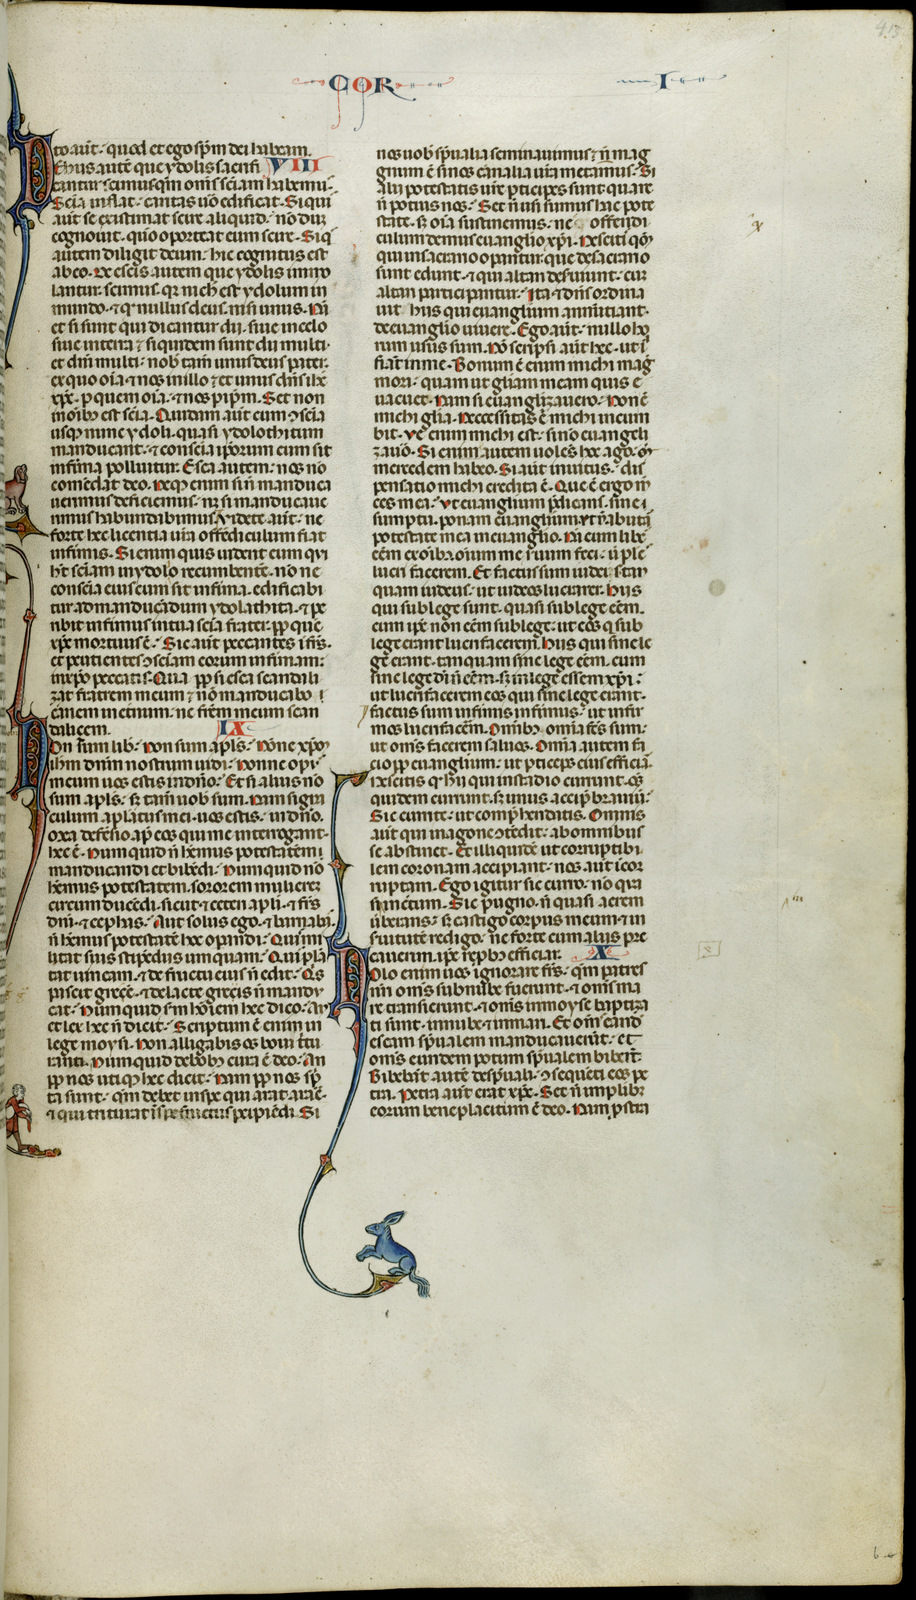 COR I
413
to aut̄. quod et ego sp̄m dei habeam.
De hiis autē que ydolis sacrifi VIII
cantur scimus qm̄ om̄s sciām habemus.
Scīa inflat. caritas u̅o edificat. Si quis
aut̄ se existimat scire aliquid. nōdum
cognouit. quō oporteat eum scire. Si q̄s
autem diligit deum. hic cognitus est
ab eo. De escis autem que ydolis immo
lantur. scimus. qr nich̄ est ydolum in
mundo. ⁊ qd̄ nullus deus. nisi unus. Nā
et si sunt qui dicantur dij. siue in celo
siue in terra ⁊ siquidem sunt dij multi.
et dn̄i multi. nob̄ tam̄ unus deus pater.
ex quo oīa. ⁊ nos in illo ⁊ et unus dn̄s ih̄c
xp̄c. p̱ quem oīa. ⁊ nos p̱ ip̄m. Set non
in oīb; est scīa. Quidam aut̄ cum ꝯsciā
usq; nunc ydoli. quasi ydolothitum
manducant. ⁊ conscīa ip̄orum cum sit
infirma polluitur. Esca autem. nos nō
comēdat deo. Neq; enim si n̄ manduca
uerimus deficiemus. nc̄ si manducaue
rimus habundabimus. Videte aut̄. ne
forte hec licentia ur̄a offēdiculum fiat
infirmis. Si enim quis uiderit eum qui
h̄t sciām in ydolo recumbentē. nōne
consciā eius cum sit infirma. edificabi
tur ad manducādum ydolathita. ⁊ pe
ribit infirmus in tua sciā frater. pp̄ que
xp̄c mortuus ē. Sic aut̄ peccantes ī fr̄s.
et percutientes ꝯsciam eorum infirmam.
in xp̄o peccatis. Qua pp̄ si esca scandali
zat fratrem meum ⁊ nō manducabo
carnem in eternum. ne frēm meum scan
dalicem. IX
Non sum lib̄. Non sum apl̄s. Nōne xp̄m
ih̄m dn̄m nostrum uidi. Nonne op̄
meum uos estis in dn̄o. Et si aliis nō
sum apl̄s. s; tam̄ uob̄ sum. Nam signa
culum ap̄latus mei. uos estis. in dn̄o.
mea defēsio. ap̄ eos qui me interrogant.
hec ē. Nunquid n̄ hēmus potestatēm
manducandi et bibēdi. Nunquid nō
hēmus potestatem. sororem mulierem
circumducēdi. sicut ⁊ ceteri ap̄li. ⁊ fr̄s
dn̄i. ⁊ cephas. Aut solus ego. ⁊ barnabas
n̄ hēmus potestatē hec opandi. Quis mi
litat suis stipēdiis umquam. Quis plā
tat uineam. ⁊ de fructu eius n̄ edit. Q̄s
pascit gregē. ⁊ de lacte gregis n̄ mandu
cat. Nunquid sm̄ hōiem hec dico. An
et lex hec n̄ dicit. Scriptum ē enim in
lege moysi. Non alligabis os boui tri
turanti. Nunquid de bob; cura ē deo. An
pp̄ nos utiq; hec dicit. Nam pp̄ nos sp̄
ta sunt. qm̄ debet in spe qui arat arare.
⁊ qui triturat ī spe fructus p̱cipiēdi. Si
nos uob̄ sp̄ualia seminauimus ⁊ n̄ mag
num ē si nos carnalia ur̄a metamus. Si
alii potestatis ur̄e p̱ticipes sunt quare
n̄ potius nos. Set n̄ usi sumus hac pote
state. s; oīa sustinemus. ne offendi
culum demus euanglio xp̄i. Nescitis qm̄
qui in sacrario opantur. que de sacrario
sunt edunt. ⁊ qui altari deseruiunt. cum
altari participantur. Ita ⁊ dn̄s ordina
uit hiis qui euanglium annūtiant.
de euanglio uiuere. Ego aut̄. nullo ho
rum usus sum. Nō scripsi aut̄ hec. ut ita
fiant in me. Bonum ē enim michi mag
mori. quam ut gl̄iam meam quis e
uacuet. Nam si euanglizauero. Non ē
michi gl̄ia. Necessitas ē michi incum
bit. Ve enim michi est. si nō euangeli
zauō. Si enim autem uolēs hec ago.
mercedem habeo. Si aut̄ inuitus. dis
pensatio michi credita ē. Que ē ergo m̄
ces mea. Vt euanglium p̄dicans. sine
sumptu. ponam euanglium ut n̄ abutar
potestate mea in euanglio. Nā cum lib̄
eēm ex oīb; oīum me s̄uum feci. ut ples
lucri facerem. Et factus sum iudeis tan
quam iudeus. ut iudeos lucrarer. Hiis
qui sub lege sunt. quasi sub lege eēm.
cum ip̄e non eēm sub lege. ut eos q̄ sub
lege erant lucri facerem. Hiis qui sine le
ge erant. tanquam sine lege eēm. cum
sine lege dī n̄ eēm. s; in lege essem xp̄i.
ut lucri facerem eos qui sine lege erant.
Factus sum infirmis infirmus. ut infir
mos lucri facerē. Omīb; omīa fcs̄ sum.
ut om̄s facerem saluos. Omīa autem fa
cio pp̄ euanglium. ut p̱ticeps eius efficiar.
Nescitis q̄ hij qui in stadio currunt. om̄s
quidem currunt. s; unus accip̄ brauiū.
Sic currite. ut comp̱hendatis. Omnis
aut̄ qui in agone ꝯtēdit. ab omnibus
se abstinet. Et illi quidē ut corruptibi
lem coronam accipiant. nos aut̄ īcor
ruptam. Ego igitur sic curro. nō qua
si incertum. Sic pugno. n̄ quasi aerem
uberans. s; castigo corpus meum ⁊ in
s̄uitutē redigo. ne forte cum aliis pre
cauerim. ip̄e rep̄bus efficiar. X
Nolo enim uos ignorare fr̄s. qm̄ patres
nr̄i om̄s sub nube fuerunt. ⁊ om̄s ma
re transierunt. ⁊ om̄s in moyse baptiza
ti sunt. in nube ⁊ in mari. Et om̄s eand̄
escam sp̄ualem manducauerūt. et
om̄s eundem potum sp̄ualem biber̄t.
Bibebāt autē de sp̄uali. ꝯsequēti eos pe
tra. Petra aut̄ erat xp̄c. Set n̄ in plib;
eorum beneplacitum ē deo. Nam p̄stra